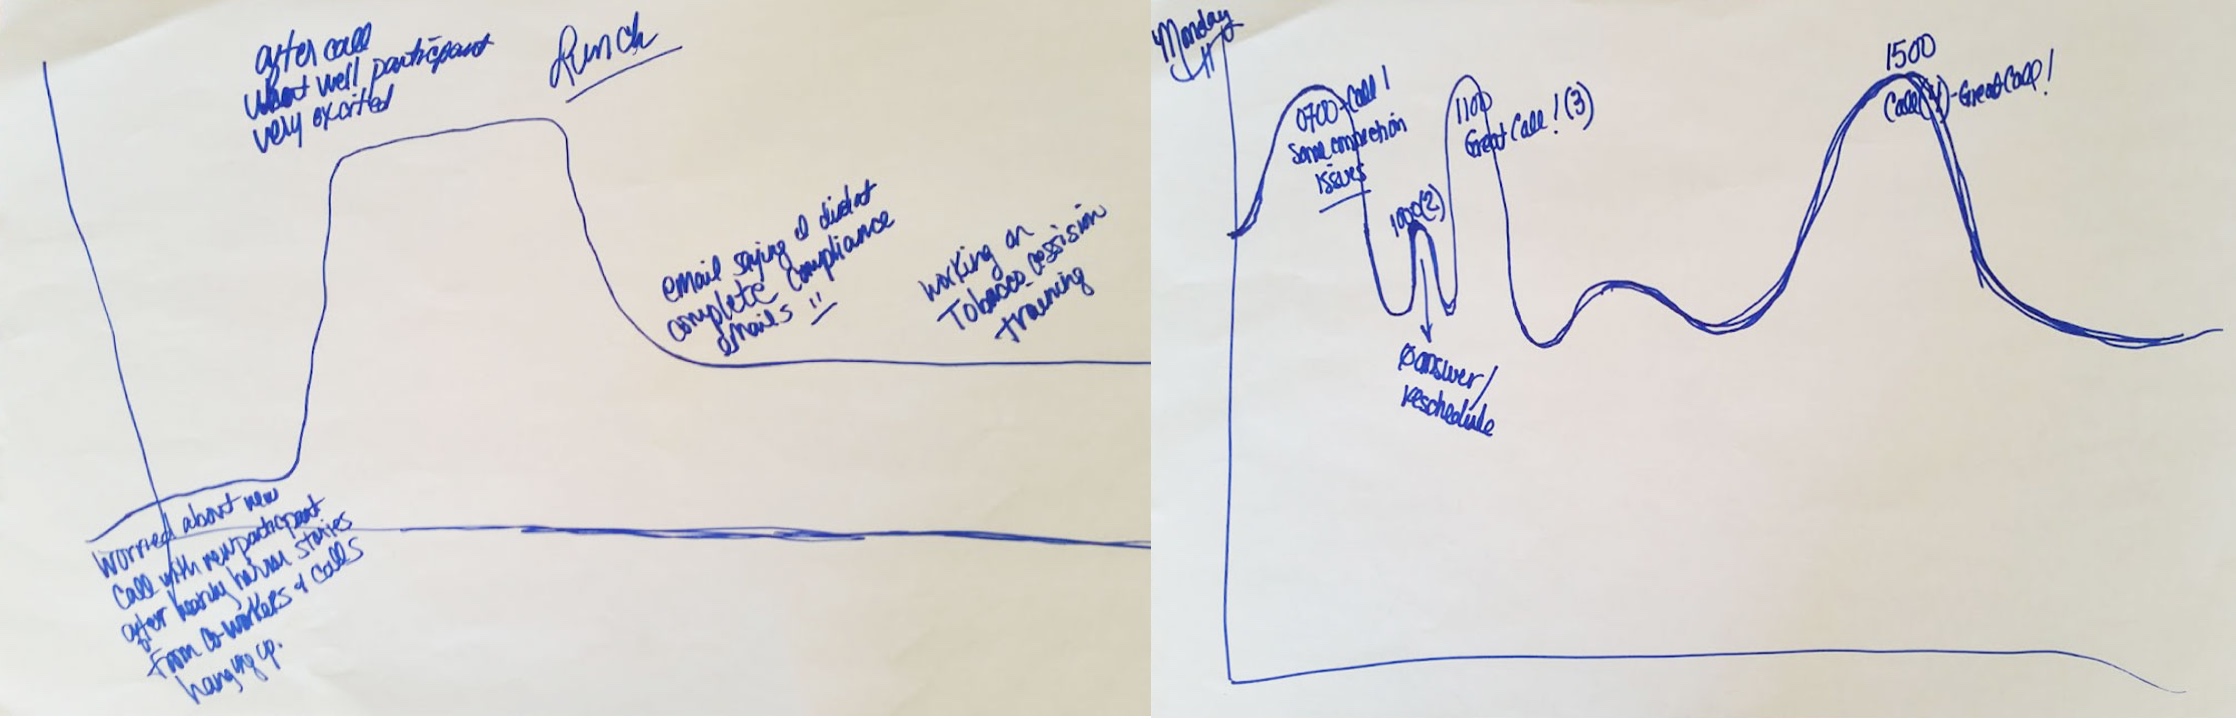 after call
went well participant
very excited
Lunch
email saying I didnt
complete compliance
emails !!
working on
Tobacco cessision
training
Worried about new
call with new participant
after hearing horror stories
from co-workers & calls
hanging up.
Monday
0700-call 1
Some connection
issues
1000(2)
Øanswer/
reschedule
1100
Great Call! (3)
1500
Call(4)-Great Call!